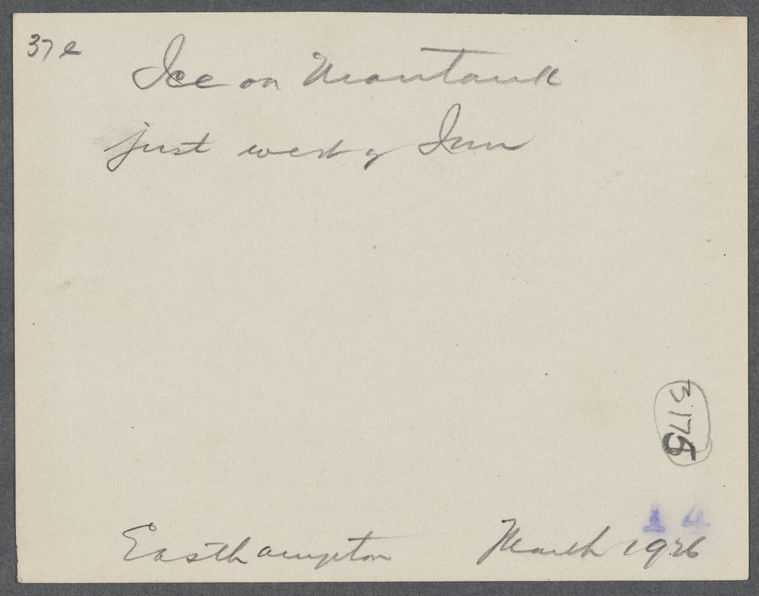 37e
Ice on Montauk
just west of Inn
3175
14
Easthampton March 1926